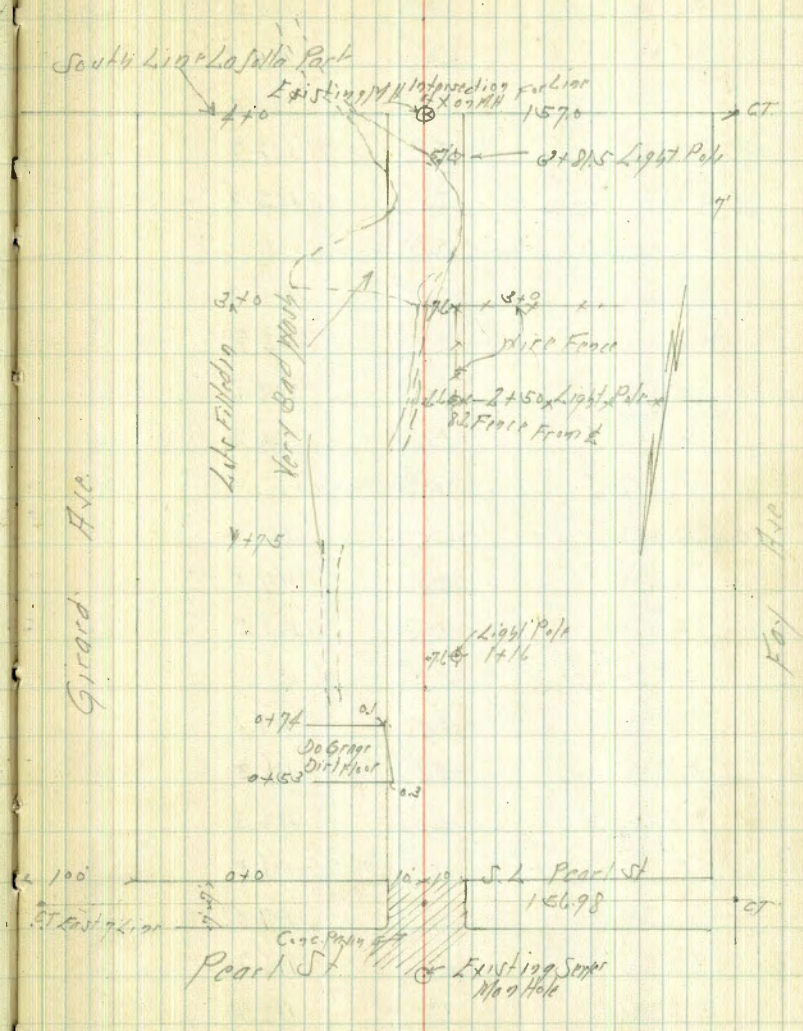 South Line La Jolla Park
Existing MH
Intersection
+ X on MH
For Line
157.0
C.T.
4+0
5.0
3+81.5 Light Pole
7'
3+0
7.6
3+0
Wire Fence
2+50 Light Pole
8.2 Fence From ℄
Lots Filled in
Very Bad Wash
Girard Ave.
Fay Ave
1+75
Light Pole
7.6
1+16
0+74
0.1
Do Grage
Dirt Floor
0+53
0.3
100'
0+0
10
10
S.L Pearl St
156.98
C.T.
Pearl St
Existing Sewer
Man Hole